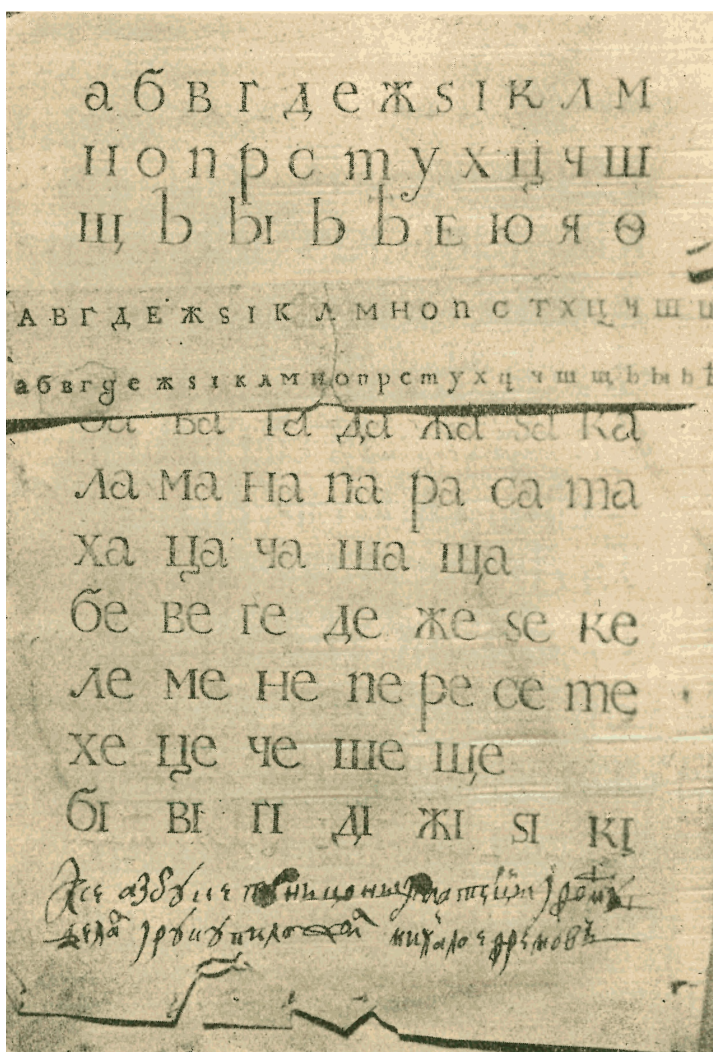 а б в г д е ж ѕ і к л м
н о п р с т у х ц ч ш
щ ъ ы ь ѣ е ю я ѳ
А В Г Д Е Ж Ѕ І К Л М Н О П С Т Х Ц Ч Ш Щ
а б в г д е ж ѕ і к л м н о п р с т у х ц ч ш щ ъ ы ь ѣ
ба ва га да жа ѕа ка
ла ма на па ра са та
ха ца ча ша ща
бе ве ге де же ѕе ке
ле ме не пе ре се те
хе це че ше ще
бі ві гі ді жі ѕі кі
михало ефремовъ